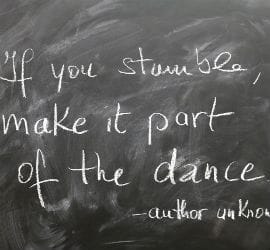 If you stumble,
make it part
of the dance
-author unknow